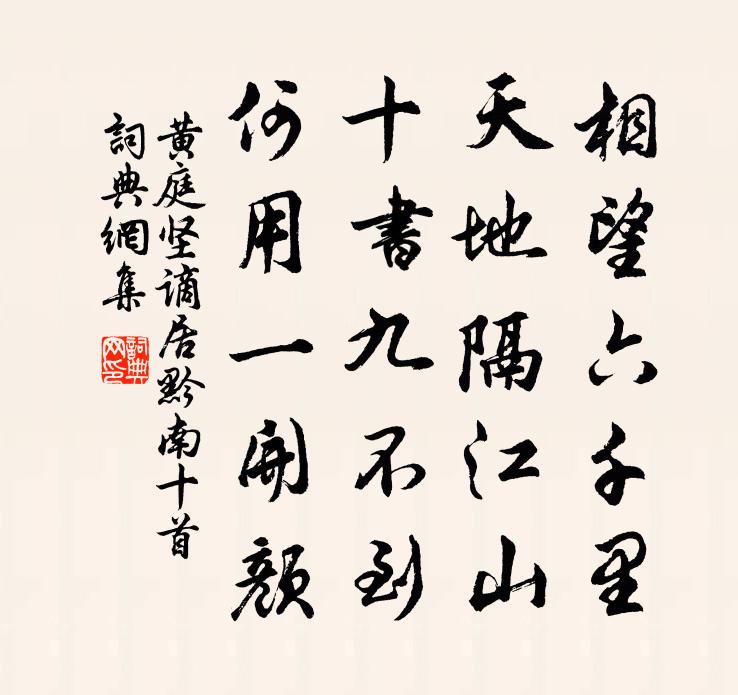 相望六千里
天地隔江山
十書九不到
何用一開顏
黄庭坚谪居黔南十首
詞典網集
詞典
网印